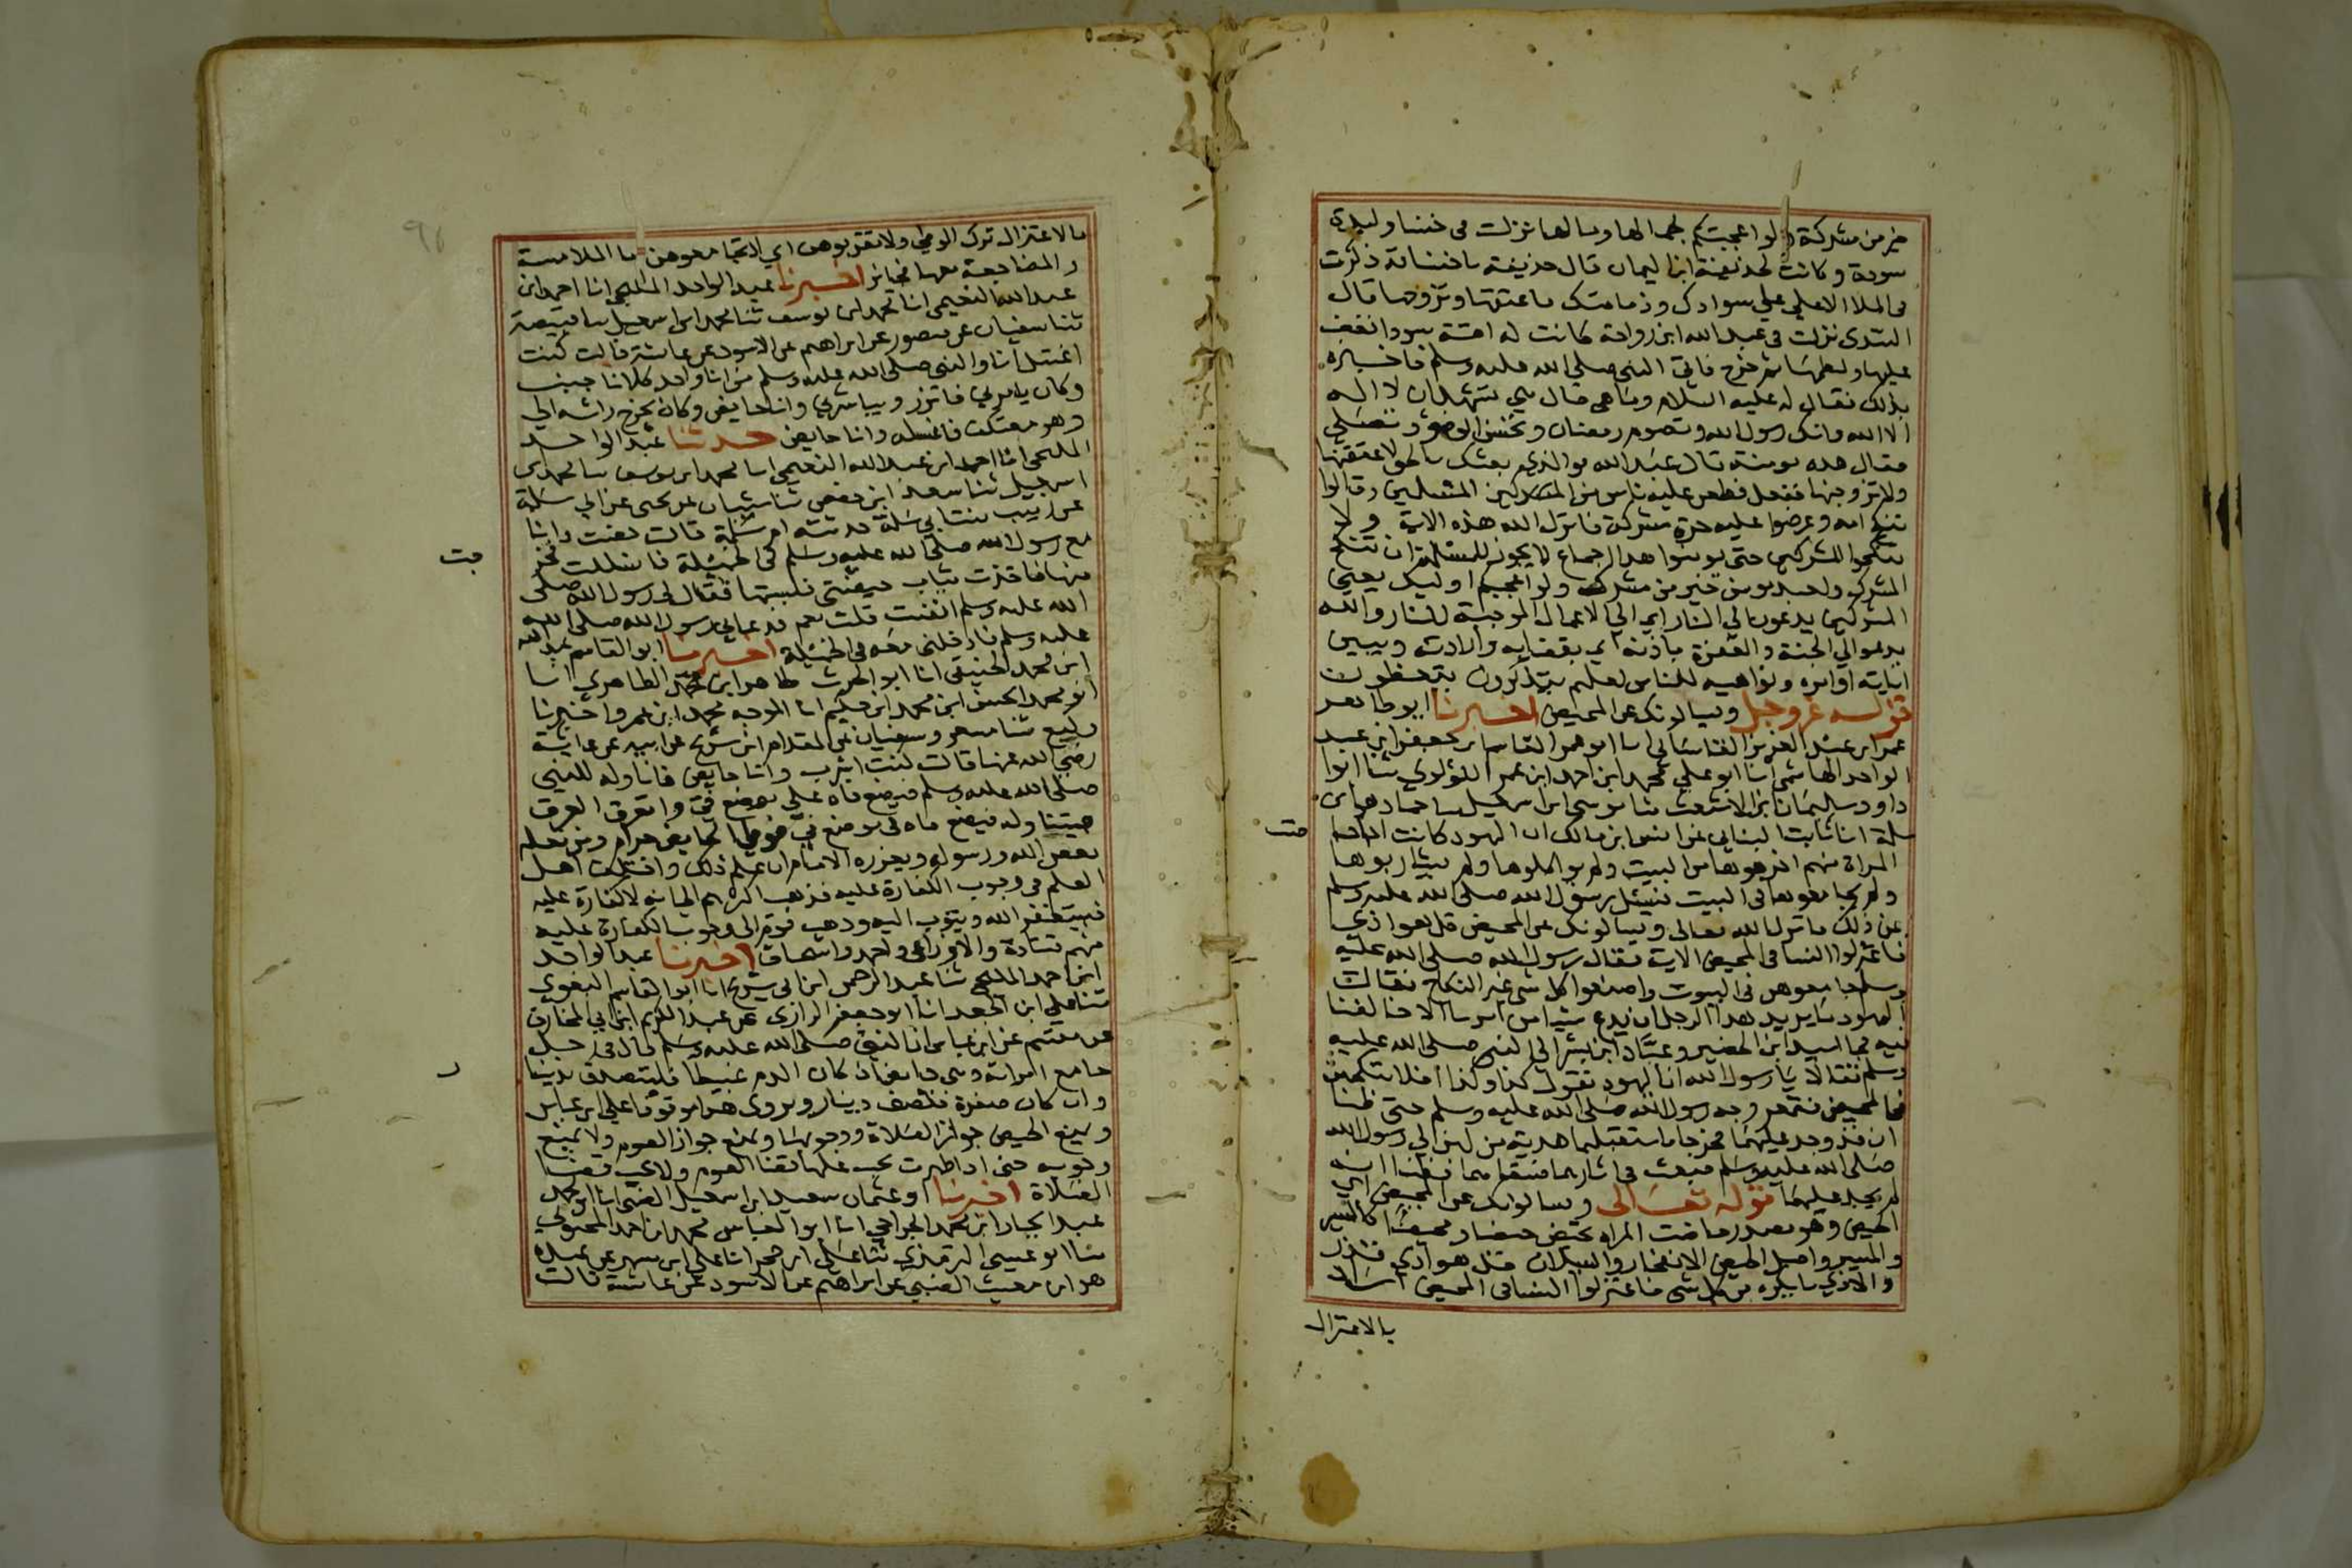 خير من مشركة ولو اعجبتكم لجمالها ومالها نزلت في خنسا وليدة
سودة وكانت لحذيفة ابن اليمان قال حذيفة يا خنسا قد ذكرت
في الملا الاعلى على سوادك وذمامتك فاعتقها وتزوجها قال
السدي نزلت في عبد الله ابن رواحة كانت له امة سودا فغضب
عليها ولطمها ثم فزع فاتى النبي صلى الله عليه وسلم فاخبره
بذلك فقال له عليه السلام وما هي قال هي تشهد ان لا اله
الا الله وانك رسول الله وتصوم رمضان وتحسن الوضوء وتصلي
فقال هذه مومنة قال عبد الله فوالذي بعثك بالحق لاعتقنها
ولاتزوجنها ففعل فطعن عليه ناس من المسلمين وقالوا
تنكح امه وعرضوا عليه حرة مشركة فانزل الله هذه الاية ولا
تنكحوا المشركين حتى يومنوا هذا اجماع لا يجوز للمسلمة ان تنكح
المشرك ولعبد مومن خير من مشرك ولو اعجبكم اوليك يعني
المشركين يدعون الي النار اي الي الاعمال الموجبة للنار والله
يدعوا الي الجنة والمغفرة باذنه اي بقضايه وارادته ويبين
اياته اوامره ونواهيه للناس لعلهم يتذكرون يتعظون
قوله عز وجل ويسالونك عن المحيض اخبرنا ابو طاهر
عمر ابن عبد العزيز القاشاني انا ابو عمر القاسم ابن جعفر ابن عبد
الواحد الهاشمي انا ابو علي محمد ابن احمد ابن عمر اللؤلوي ثنا ابوا
داود سليمان ابن الاشعث ثنا موسى ابن اسمعيل ثنا حماد هو ابن
سلمة انا ثابت البناني عن انس ابن مالك ان اليهود كانت اذا حاضت
المراة منهم اخرجوها من البيت ولم يواكلوها ولم يشاربوها
ولم يجامعوها في البيت فسئل رسول الله صلى الله عليه وسلم
عن ذلك فانزل الله تعالى ويسالونك عن المحيض قل هو اذي
فاعتزلوا النسا في المحيض الاية فقال رسول الله صلى الله عليه
وسلم جامعوهن في البيوت واصنعوا كل شي غير النكاح فقالت
اليهود ما يريد هذا الرجل ان يدع شيا من امرنا الا خالفنا
فيه فجا اسيد ابن الحضير وعباد ابن بشر الي النبي صلى الله عليه
وسلم فقالا يا رسول الله ان اليهود تقول كذا وكذا افلا ننكحهن
في المحيض فتمعر وجه رسول الله صلى الله عليه وسلم حتى ظننا
ان قد وجد عليهما فخرجا فاستقبلهما هدية من لبن الي رسول الله
صلى الله عليه وسلم فبعث في اثارهما فسقاهما فظننا انه
لم يجد عليهما قوله تعالى ويسالونك عن المحيض اي
الحيض وهو مصدر حاضت المراه تحيض حيضا ومحيضا كالسير
والمسير واصل الحيض الانفجار والسيلان قل هو اذي قذر
والاذي ما يكره من كل شي فاعتزلوا النسا في المحيض اراد
بالاعتزال
بالاعتزال ترك الوطي ولا تقربوهن اي لا تجامعوهن اما الملامسة
والمضاجعة معها فجائز اخبرنا عبد الواحد المليحي انا احمد ابن
عبد الله النعيمي انا محمد ابن يوسف ثنا محمد ابن اسمعيل ثنا قبيصة
ثنا سفيان عن منصور عن ابراهيم عن الاسود عن عائشة قالت كنت
اغتسل انا والنبي صلى الله عليه وسلم من انا واحد كلانا جنب
وكان يامرني فاتزر ويباشرني وانا حايض وكان يخرج راسه الي
وهو معتكف فاغسله وانا حايض حدثنا عبد الواحد
المليحي انا احمد ابن عبد الله النعيمي انا محمد ابن يوسف ثنا محمد ابن
اسمعيل ثنا سعد ابن حفص ثنا شيبان عن يحيى عن ابي سلمة
عن زينب بنت ابي سلمة حدثته ام سلمة قالت حضت وانا
مع رسول الله صلى الله عليه وسلم في الخميلة فانسللت فخرجت
منها فاخذت ثياب حيضتي فلبستها فقال لي رسول الله صلى
الله عليه وسلم انفست قلت نعم فدعاني رسول الله صلى الله
عليه وسلم فادخلني معه في الخميلة اخبرنا ابو القاسم عبد الله
ابن محمد الحنيفي انا ابو الحرث طاهر ابن محمد الطاهري انا
ابو محمد الحسن ابن محمد ابن حكيم انا ابو الموجه محمد ابن عمرو اخبرنا
وكيع ثنا مسعر وسفيان عن المقدام ابن شريح عن ابيه عن عائشة
رضي الله عنها قالت كنت اشرب وانا حايض فاناوله للنبي
صلى الله عليه وسلم فيضع فاه على موضع في واتعرق العرق
فيتناوله فيضع فاه في موضع في فوطي الحايض حرام ومن فعله
يعصي الله ورسوله ويعزره الامام ان علم ذلك واختلف اهل
العلم في وجوب الكفارة عليه فذهب اكثرهم الي انه لا كفارة عليه
فيستغفر الله ويتوب اليه وذهب قوم الى وجوب الكفارة عليه
منهم قتادة والاوزاعي واحمد واسحاق اخبرنا عبد الواحد
ابن احمد المليحي ثنا عبد الرحمن ابن ابي شريح انا ابو القاسم البغوي
ثنا علي ابن الجعد انا ابو جعفر الرازي عن عبد الكريم ابن ابي المخارق
عن مقسم عن ابن عباس ان النبي صلى الله عليه وسلم قال في رجل
جامع امراته وهي حايض ان كان الدم عبيطا فليتصدق بدينار
وان كان صفرة فنصف دينار ويروى هذا موقوفا على ابن عباس
ويمنع الحيض جواز الصلاة ووجوبها ويمنع جواز الصوم ولا يمنع
وجوبه حتى اذا طهرت يجب عليها قضا الصوم ولا يجب قضا
الصلاة اخبرنا ابو عثمان سعيد ابن اسمعيل الضبي انا ابو محمد
عبد الجبار ابن محمد الجراحي انا ابو العباس محمد ابن احمد المحبوبي
ثنا ابو عيسى الترمذي ثنا علي ابن حجر انا علي ابن مسهر عن عبيدة
هو ابن معتب الضبي عن ابراهيم عن الاسود عن عائشة قالت